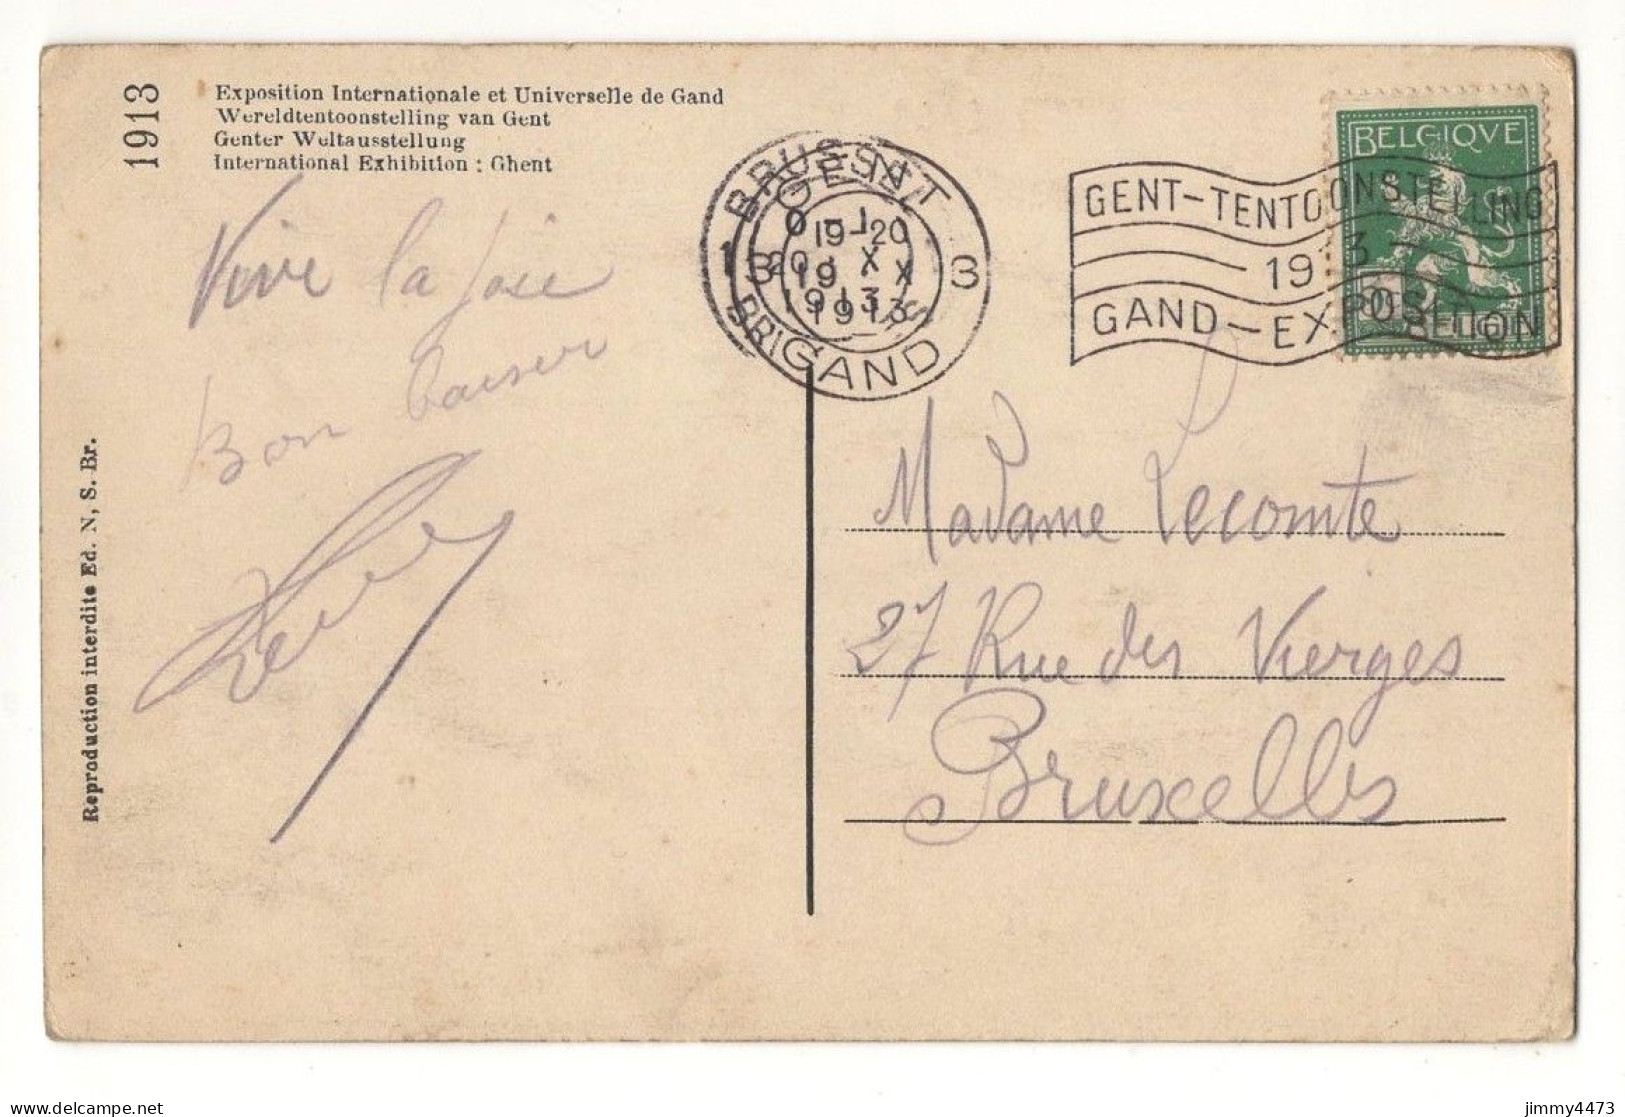 1913
Exposition Internationale et Universelle de Gand
Wereldtentoonstelling van Gent
Genter Weltausstellung
International Exhibition : Ghent
Vive la joie
Bon baiser
Reproduction interdite Ed. N, S. Br.
GENT
19-20
19 X
1913
3 3
GAND
GENT-TENTOONSTELLING
1913
GAND-EXPOSITION
BELGIQUE
5
BELGIË
Madame Lecomte
27 Rue des Vierges
Bruxelles
jimmy4473
delcampe.net